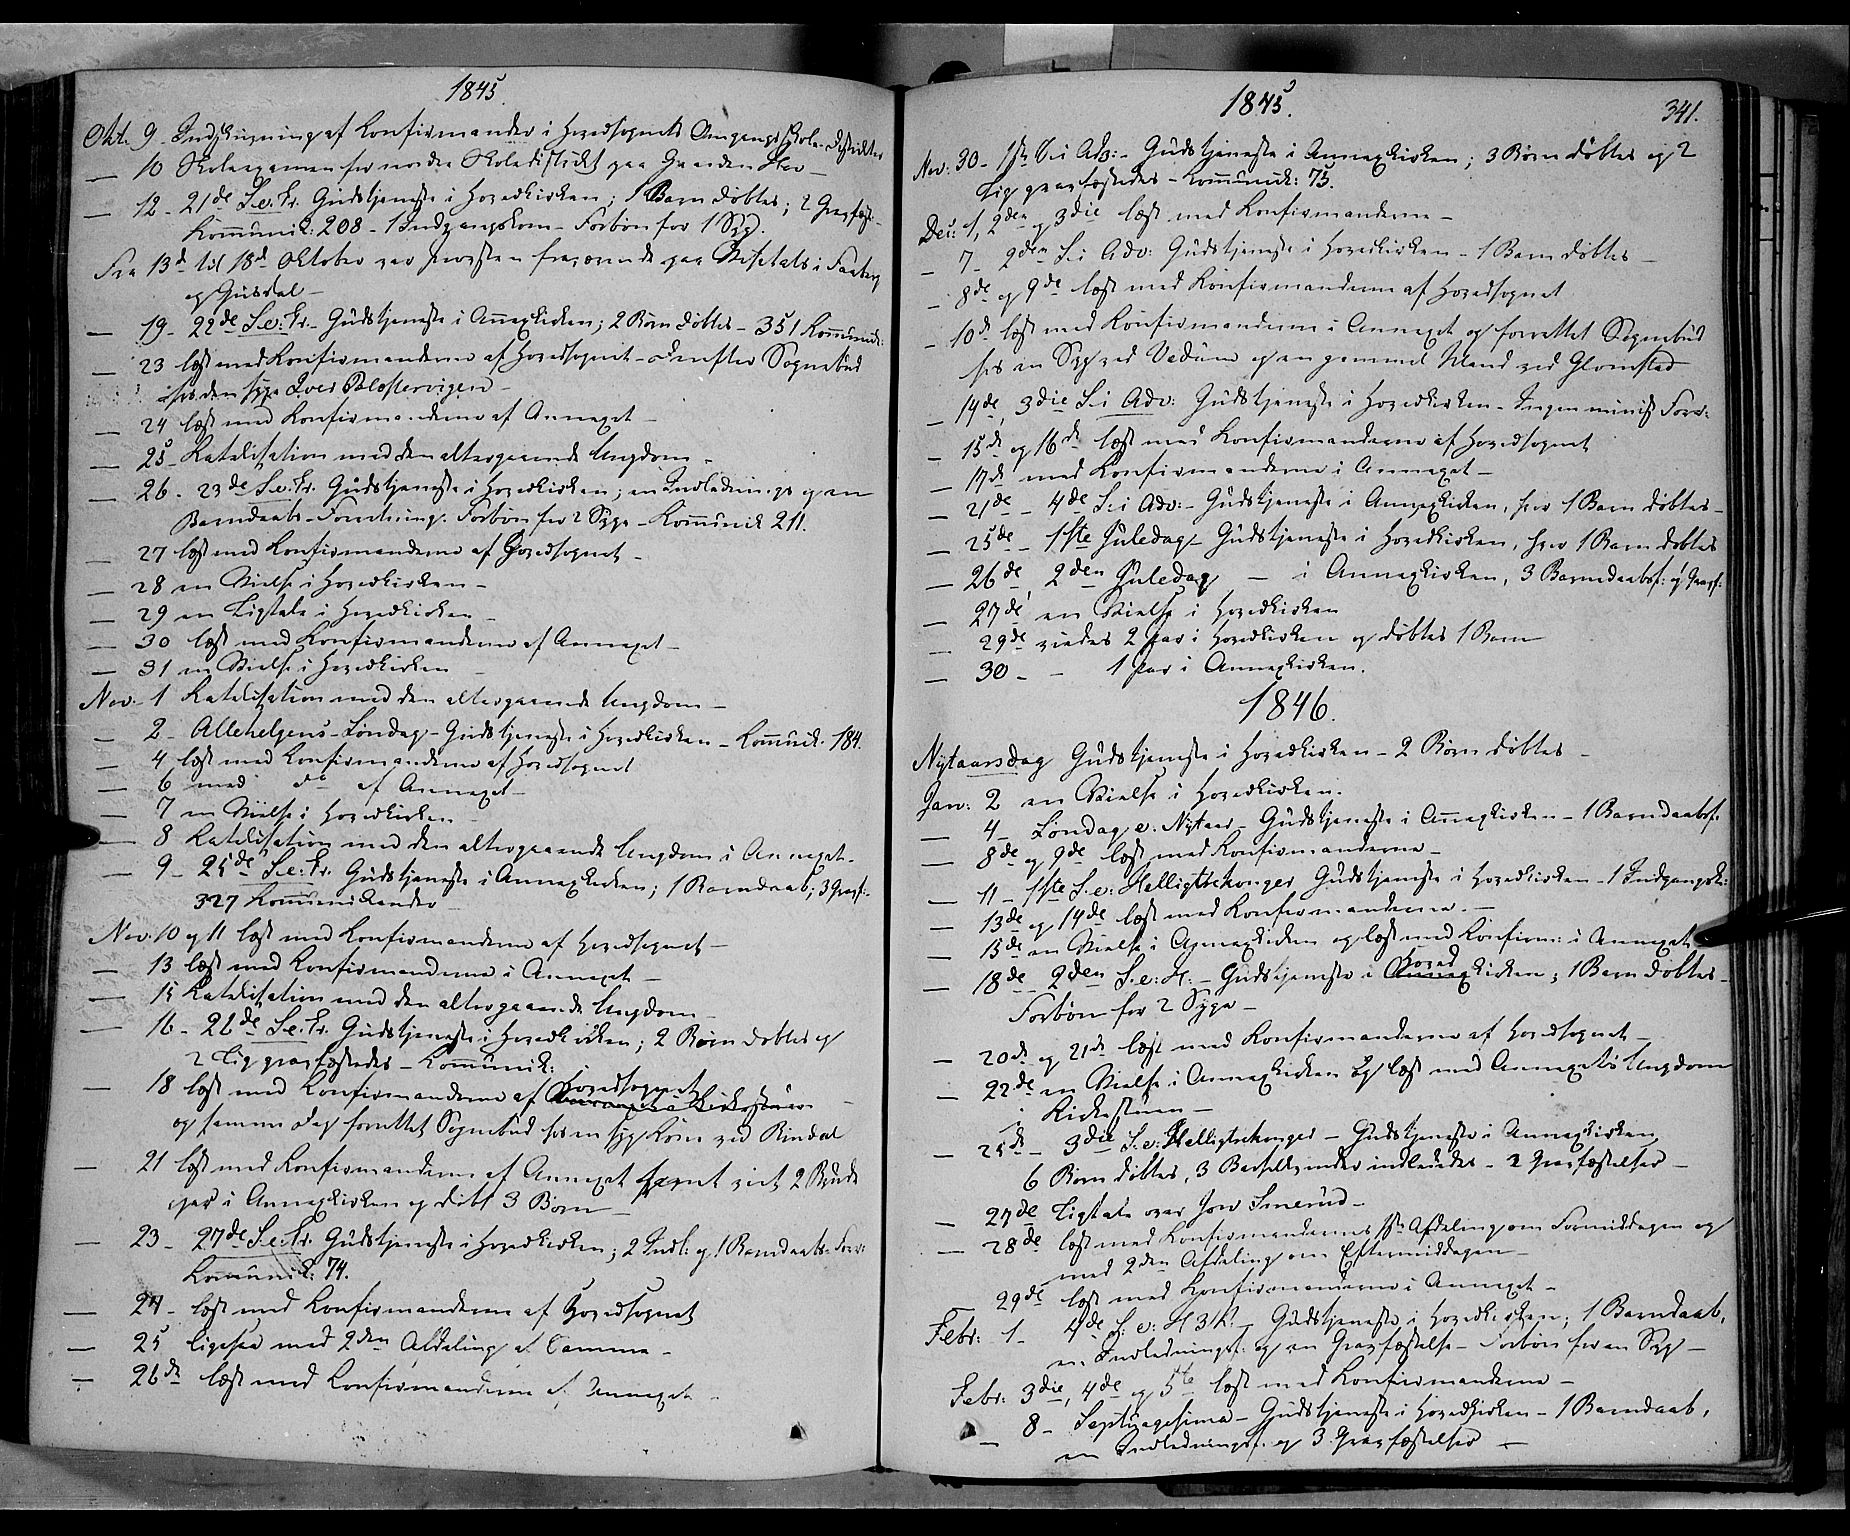 1845.
Okt. 9 - Indskrivning af Konfirmander i Hovedsognets Omgangsskole-Distrikter
— 10 Skoleexamen for nordre Skoledistrikt paa Gaarden
— 12 - 21de S. e. Tr. Gudstjeneste i Hovedkirken; 1 Barn døbtes; 2 Gravfæst.
Kommunik: 208 - 1 Indgangskone - Forbøn for 1 Syg.
Fra 13de til 18de Oktober var Provsten fraværende paa Visitats i Faaberg
og Gusdal —
— 19 - 22de S. e. Tr. - Gudstjeneste i Annexkirken; 2 Børn døbtes - 351 Kommunik:
— 23 læst med Konfirmanderne af Hovedsognet - derefter Sognebud
hos den syge Iver
— 24 læst med Konfirmanderne af Annexet —
— 25 - Katekisation med den altergaaende Ungdom -
— 26 - 23de S. e. Tr. Gudstjeneste i Hovedkirken; en Indlednings og en
Barndaabs-Forretning. Forbøn for 2 Syge - Kommunik 211.
— 27 læst med Konfirmanderne af Hovedsognet —
— 28 en Vielse i Hovedkirken —
— 29 en Ligtale i Hovedkirken
— 30 læst med Konfirmanderne af Annexet —
— 31 en Vielse i Hovedkirken
Nov. - 1 Katekisation med den altergaaende Ungdom —
— 2 - Allehelgens-Søndag - Gudstjeneste i Hovedkirken - Kommunik. 184.
— 4 læst med Konfirmanderne af Hovedsognet
— 6 med do af Annexet —
— 7 en Vielse i Hovedkirken
— 8 Katekisation med den altergaaende Ungdom i Annexet.
— 9 - 25de S. e. Tr. Gudstjeneste i Annexkirken; 1 Barndaab; 3 Gravf:
327 Kommunikander
Nov: 10 og 11 læst med Konfirmanderne af Hovedsognet —
— 13 læst med Konfirmanderne i Annexet —
— 15 Katekisation med den altergaaende Ungdom —
— 16 - 26de S. e. Tr. Gudstjeneste i Hovedkirken; 2 Børn døbtes og
2 Lig gravfæstedes - Kommunik:
— 18 læst med Konfirmanderne af Hovedsognet
og samme Dag forrettet Sognebud hos en syg Kone ved Rindal
— 21 læst med Konfirmanderne af Annexet samt viet 2 Brude
par i Annexkirken og døbt 3 Børn —
— 23 - 27de S. e. Tr. Gudstjeneste i Hovedkirken; 2 Indl: og 1 Barndaabs-Forr:
Kommunik: 74.
— 24 - læst med Konfirmanderne af Hovedsognet
— 25 ligesaa med 2den Afdeling af Samme —
— 26de læst med Konfirmanderne af Annexet —
1845.
341.
Nov: 30 - 1ste S. i Adv: - Gudstjeneste i Annexkirken; 3 Børn døbtes og 2
Lig gravfæstedes - Kommunik: 75.
Dec: 1, 2den og 3die læst med Konfirmanderne —
— 7 - 2den S. i Adv: Gudstjeneste i Hovedkirken - 1 Barn døbtes —
— 8de og 9de læst med Konfirmanderne af Hovedsognet
— 10de læst med Konfirmanderne i Annexet og forrettet Sognebud
hos en Syg ved Vedum og en gammel Mand ved Glomstad
— 14de, 3die S. i Adv: Gudstjeneste i Hovedkirken - Ingen minist Forr:
— 15de og 16de læst med Konfirmanderne af Hovedsognet
— 17de med Konfirmanderne i Annexet —
— 21de - 4de S. i Adv: - Gudstjeneste i Annexkirken, hvor 1 Barn døbtes —
— 25de - 1ste Juledag - Gudstjeneste i Hovedkirken, hvor 1 Barn døbtes
— 26de, 2den Juledag — i Annexkirken, 3 Barndaabsf: 1 Gravf:
— 27de, en Vielse i Hovedkirken
— 29de viedes 2 Par i Hovedkirken og døbtes 1 Barn
— 30 - - 1 Par i Annexkirken.
1846.
Nytaarsdag Gudstjeneste i Hovedkirken - 2 Børn døbtes —
Jan: 2 en Vielse i Hovedkirken.
— 4 - Søndag e. Nytaar - Gudstjeneste i Annexkirken - 1 Barndaabsf.
— 8de og 9de læst med Konfirmanderne —
— 11 - 1ste S. e: Helligtrekonger Gudstjeneste i Hovedkirken - 1 Indgangsk:
— 13de og 14de læst med Konfirmanderne. —
— 15de en Vielse i Annexkirken og læst med Konfirm: i Annexet
— 18de - 2den S. e. H: - Gudstjeneste i Hovedkirken; 1 Barn døbtes -
Forbøn for 2 Syge —
— 20de og 21de læst med Konfirmanderne af Hovedsognet —
— 22de en Vielse i Annexkirken og læst med Annexets Ungdom
i Kirkestuen —
— 25de - 3die S. e. Helligtrekonger - Gudstjeneste i Annexkirken
6 Børn døbtes, 3 Barselkvinder indlededes - 2 Gravfæstelser —
— 27de Ligtale over Smerud —
— 28de læst med Konfirmandernes 1ste Afdeling om Formiddagen og
med 2den Afdeling om Eftermiddagen —
29de læst med Konfirmanderne i Annexet —
Febr: 1 - 4de S. e: H 3 K. - Gudstjeneste i Hovedkirken; 1 Barndaab,
en Indledningsf: og en Gravfæstelse - Forbøn for en Syg —
Febr: 3die, 4de og 5te læst med Konfirmanderne —
— 8 - Septuagesima - Gudstjeneste i Hovedkirken - 1 Barndaab,
en Indledningsf. og 3 Gravfæstelser —